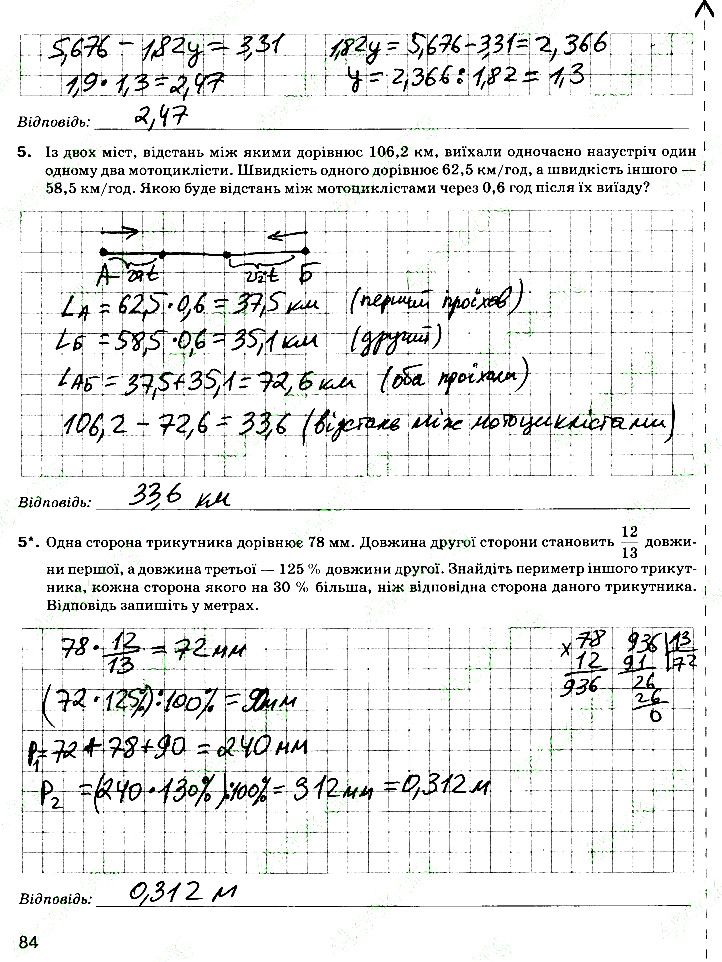 5,676 - 1,82y = 3,31    1,82y = 5,676 - 3,31 = 2,366
1,9 · 1,3 = 2,47    y = 2,366 : 1,82 = 1,3
Відповідь: 2,47
5. Із двох міст, відстань між якими дорівнює 106,2 км, виїхали одночасно назустріч один
одному два мотоциклісти. Швидкість одного дорівнює 62,5 км/год, а швидкість іншого —
58,5 км/год. Якою буде відстань між мотоциклістами через 0,6 год після їх виїзду?
А v₁t v₂t Б
LА = 62,5 · 0,6 = 37,5 км (перший проїхав)
LБ = 58,5 · 0,6 = 35,1 км (другий)
LАБ = 37,5 + 35,1 = 72,6 км (оба проїхали)
106,2 - 72,6 = 33,6 (відстань між мотоциклістами)
Відповідь: 33,6 км
5*. Одна сторона трикутника дорівнює 78 мм. Довжина другої сторони становить 12/13 довжи-
ни першої, а довжина третьої — 125 % довжини другої. Знайдіть периметр іншого трикут-
ника, кожна сторона якого на 30 % більша, ніж відповідна сторона даного трикутника.
Відповідь запишіть у метрах.
78 · 12/13 = 72 мм    × 78    936 | 13
12    91    72
936    26
26
0
(72 · 125%) : 100% = 90 мм
P₁ = 72 + 78 + 90 = 240 мм
P₂ = (240 · 130%) : 100% = 312 мм = 0,312 м
Відповідь: 0,312 м
84